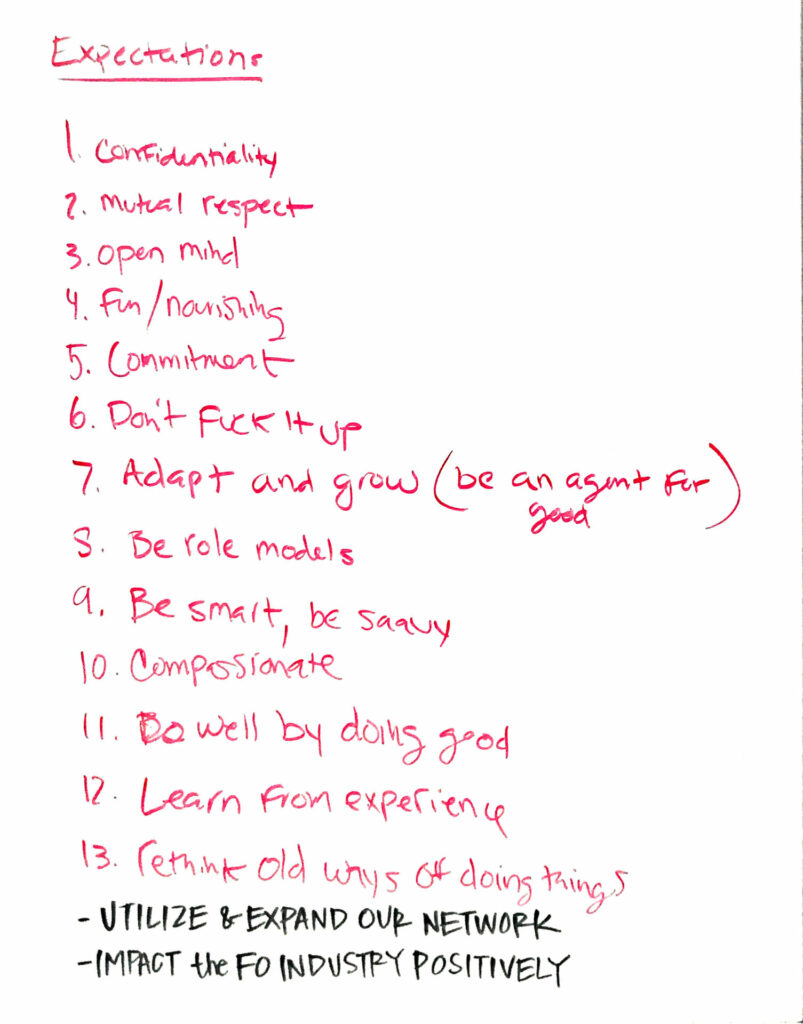 Expectations
1. Confidentiality
2. Mutual respect
3. Open mind
4. Fun/nourishing
5. Commitment
6. Don't Fuck It Up
7. Adapt and grow (be an agent for
good)
8. Be role models
9. Be smart, be saavy
10. Compassionate
11. Do well by doing good
12. Learn from experience
13. rethink old ways of doing things
- UTILIZE & EXPAND OUR NETWORK
- IMPACT the FO INDUSTRY POSITIVELY